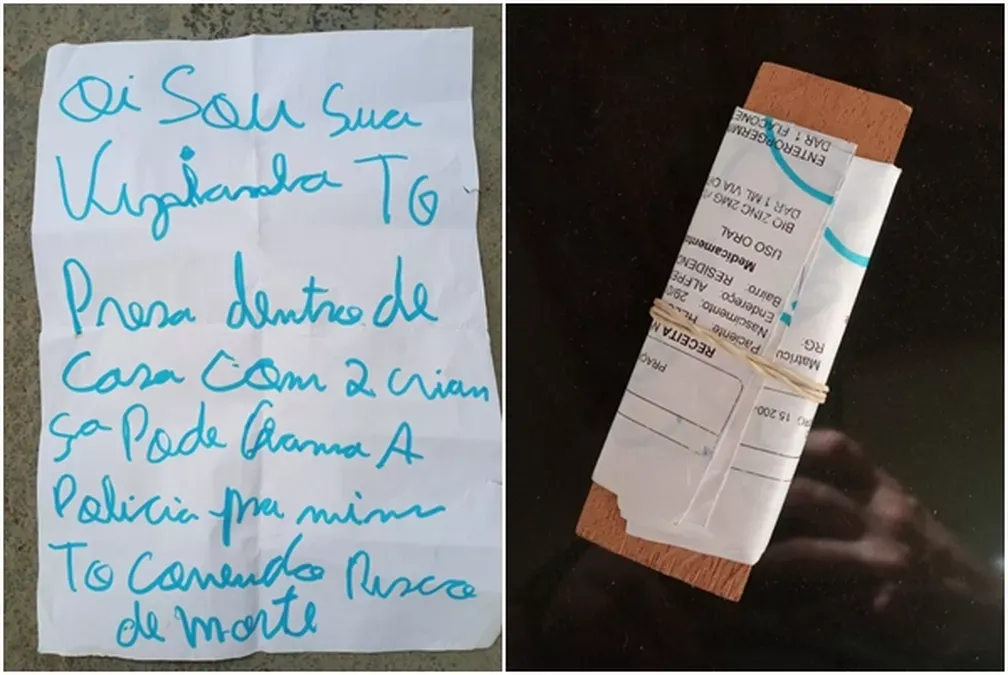 Oi Sou Sua
Vizianha TO
Presa dentro de
Casa Com 2 crian
ça Pode Chama A
Policia pra mim
To Correndo Risco
de morte
ENTERORGERMI
DAR 1 FLACONE
BIO ZINC 2MG/
DAR 1 ML VIA O
USO ORAL
Medicamento
Bairro: RESIDENC
Endereço: ALFRE
Nascimento: 29/0
Paciente:
RECEITA M
RG:
Matrícu
15.200-